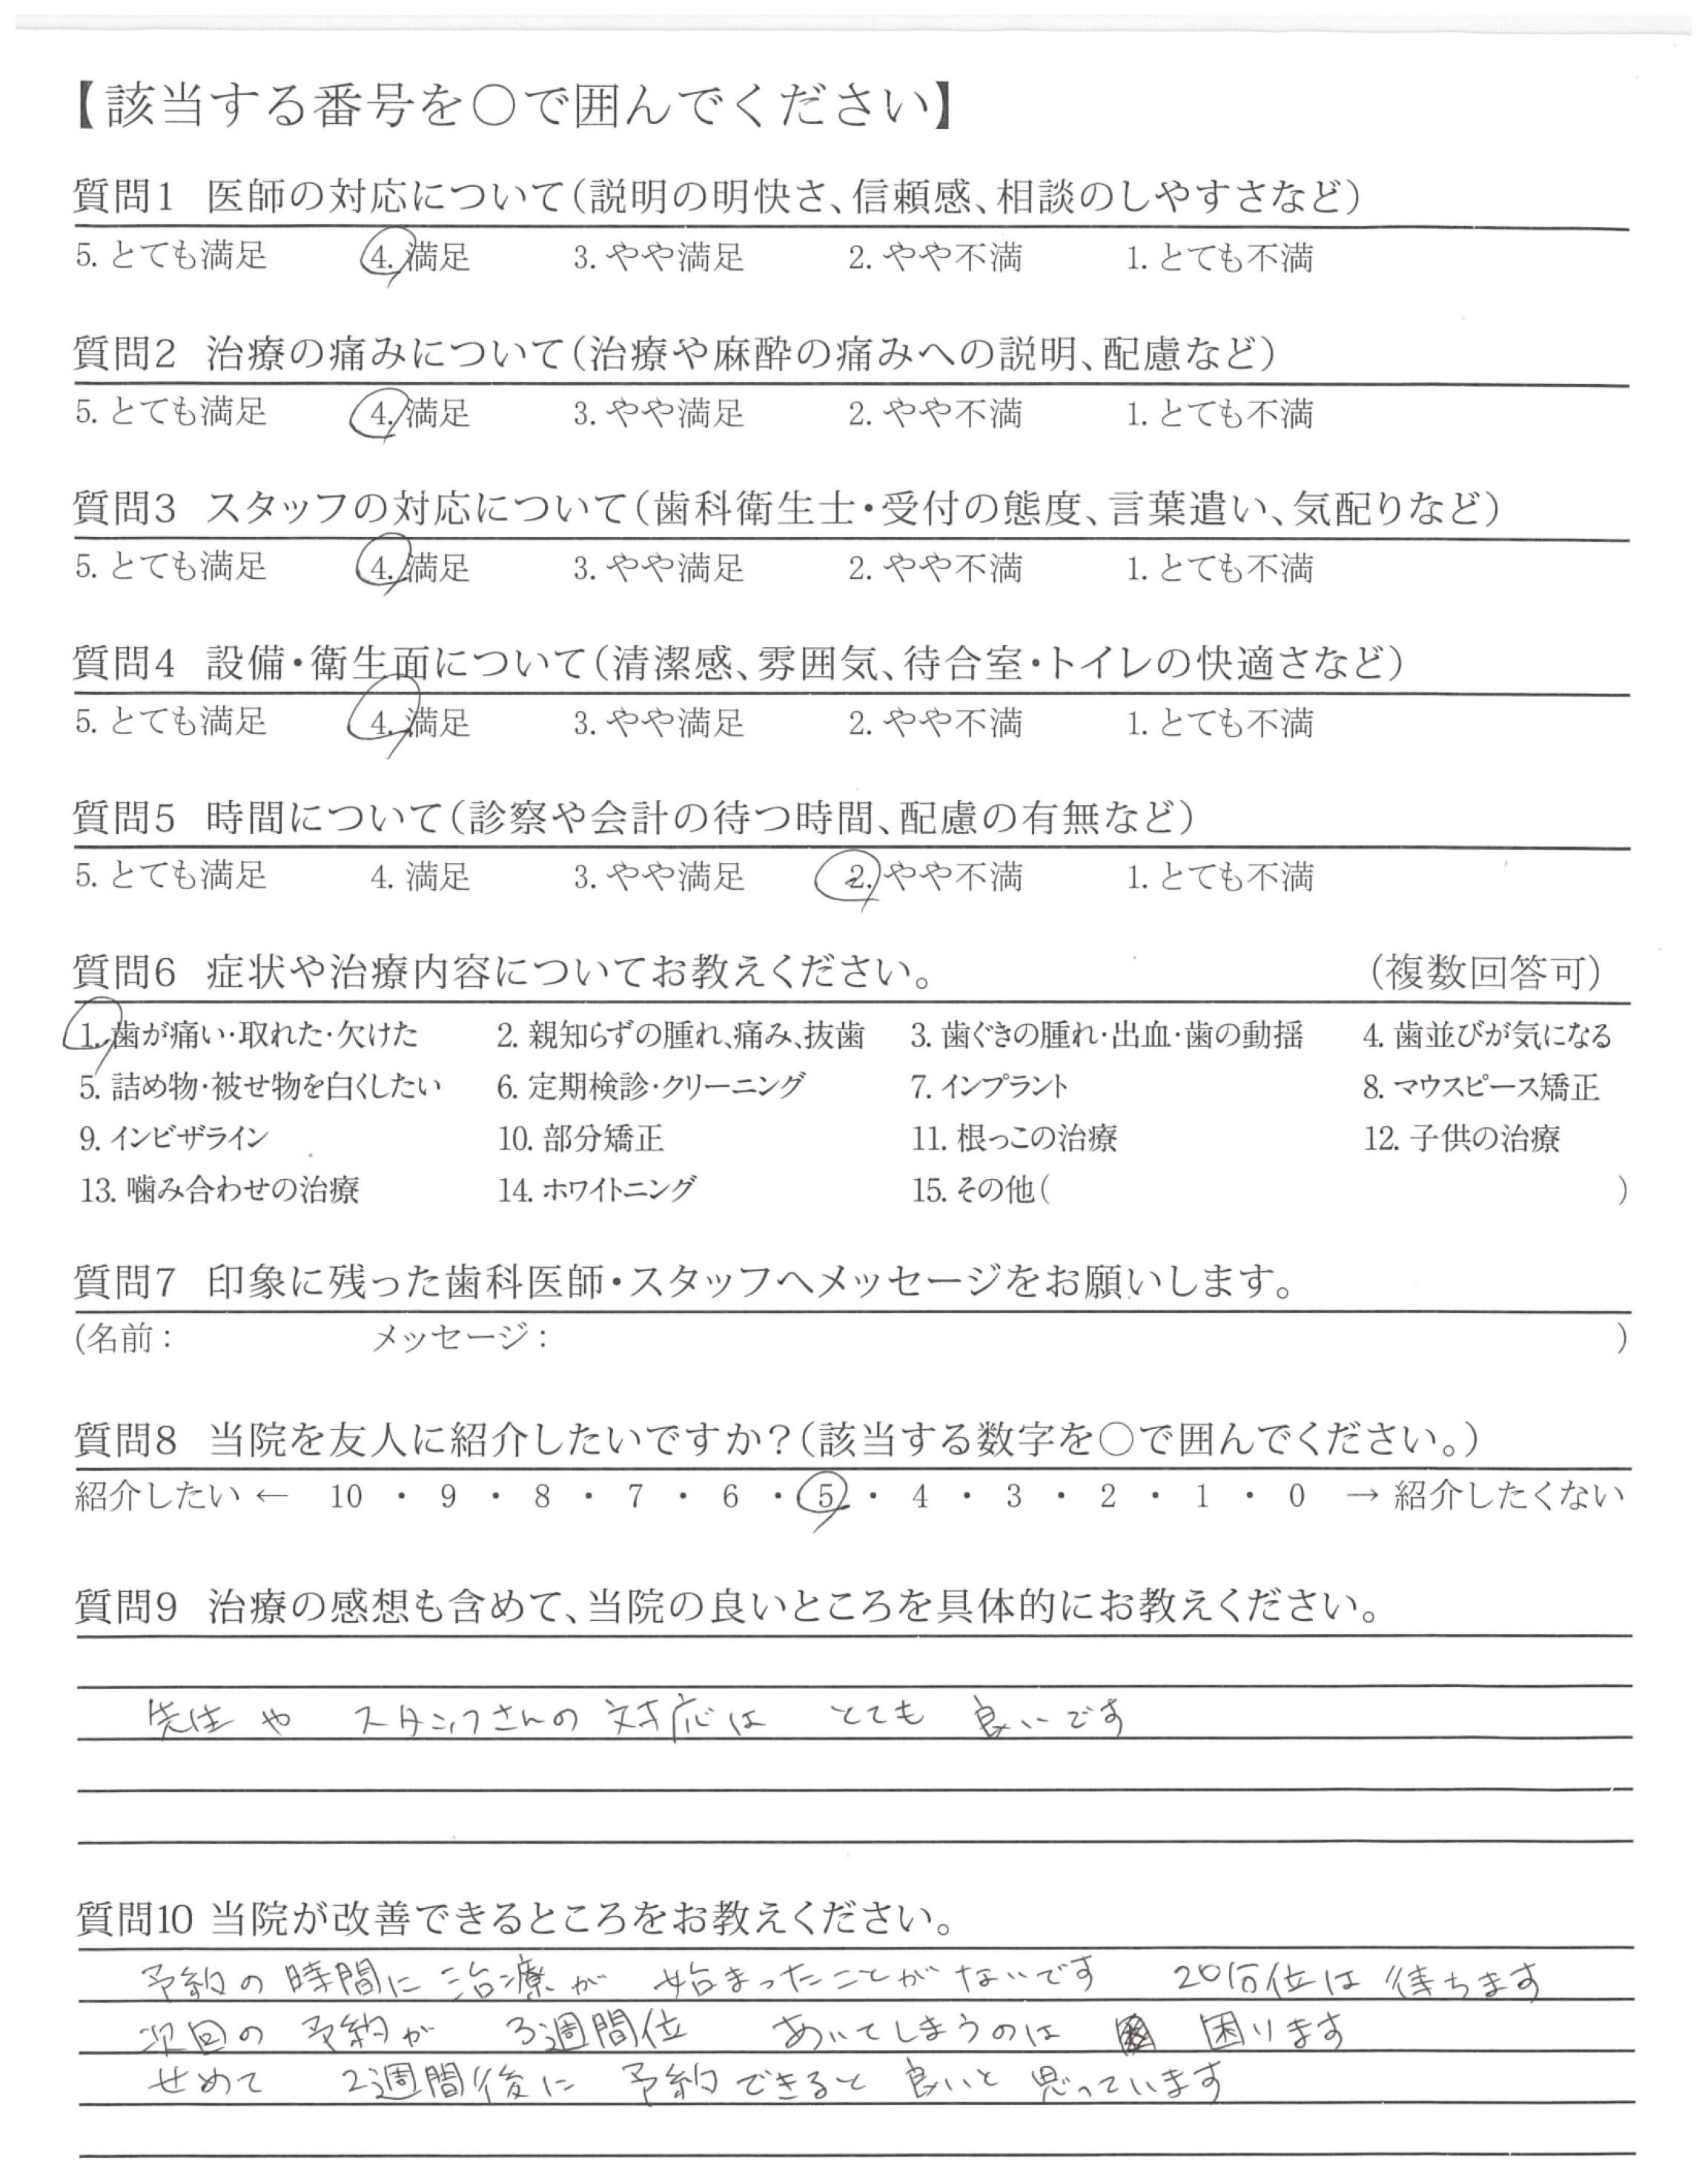 【該当する番号を○で囲んでください】
質問1 医師の対応について（説明の明快さ、信頼感、相談のしやすさなど）
5. とても満足 4. 満足 3. やや満足 2. やや不満 1. とても不満
質問2 治療の痛みについて（治療や麻酔の痛みへの説明、配慮など）
5. とても満足 4. 満足 3. やや満足 2. やや不満 1. とても不満
質問3 スタッフの対応について（歯科衛生士・受付の態度、言葉遣い、気配りなど）
5. とても満足 4. 満足 3. やや満足 2. やや不満 1. とても不満
質問4 設備・衛生面について（清潔感、雰囲気、待合室・トイレの快適さなど）
5. とても満足 4. 満足 3. やや満足 2. やや不満 1. とても不満
質問5 時間について（診察や会計の待つ時間、配慮の有無など）
5. とても満足 4. 満足 3. やや満足 2. やや不満 1. とても不満
質問6 症状や治療内容についてお教えください。 （複数回答可）
1. 歯が痛い・取れた・欠けた 2. 親知らずの腫れ、痛み、抜歯 3. 歯ぐきの腫れ・出血・歯の動揺 4. 歯並びが気になる
5. 詰め物・被せ物を白くしたい 6. 定期検診・クリーニング 7. インプラント 8. マウスピース矯正
9. インビザライン 10. 部分矯正 11. 根っこの治療 12. 子供の治療
13. 噛み合わせの治療 14. ホワイトニング 15. その他（ ）
質問7 印象に残った歯科医師・スタッフへメッセージをお願いします。
（名前： メッセージ： ）
質問8 当院を友人に紹介したいですか？（該当する数字を○で囲んでください。）
紹介したい ← 10 ・ 9 ・ 8 ・ 7 ・ 6 ・ 5 ・ 4 ・ 3 ・ 2 ・ 1 ・ 0 → 紹介したくない
質問9 治療の感想も含めて、当院の良いところを具体的にお教えください。
先生や スタッフさんの 対応は とても 良いです
質問10 当院が改善できるところをお教えください。
予約の 時間に 治療が 始まったことがないです 20分位は 待ちます
次回の 予約が 3週間位 あいてしまうのは 困ります
せめて 2週間後に 予約できると 良いと 思っています